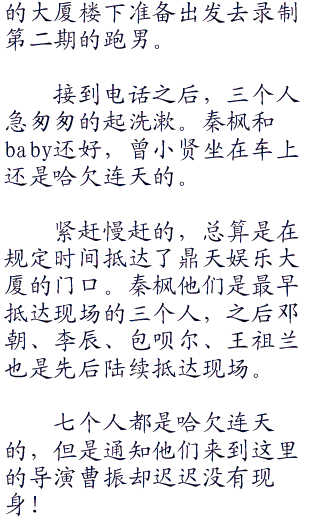 的大厦楼下准备出发去录制
第二期的跑男。
接到电话之后，三个人
急匆匆的起洗漱。秦枫和
baby还好，曾小贤坐在车上
还是哈欠连天的。
紧赶慢赶的，总算是在
规定时间抵达了鼎天娱乐大
厦的门口。秦枫他们是最早
抵达现场的三个人，之后邓
朝、李辰、包呗尔、王祖兰
也是先后陆续抵达现场。
七个人都是哈欠连天
的，但是通知他们来到这里
的导演曹振却迟迟没有现
身！